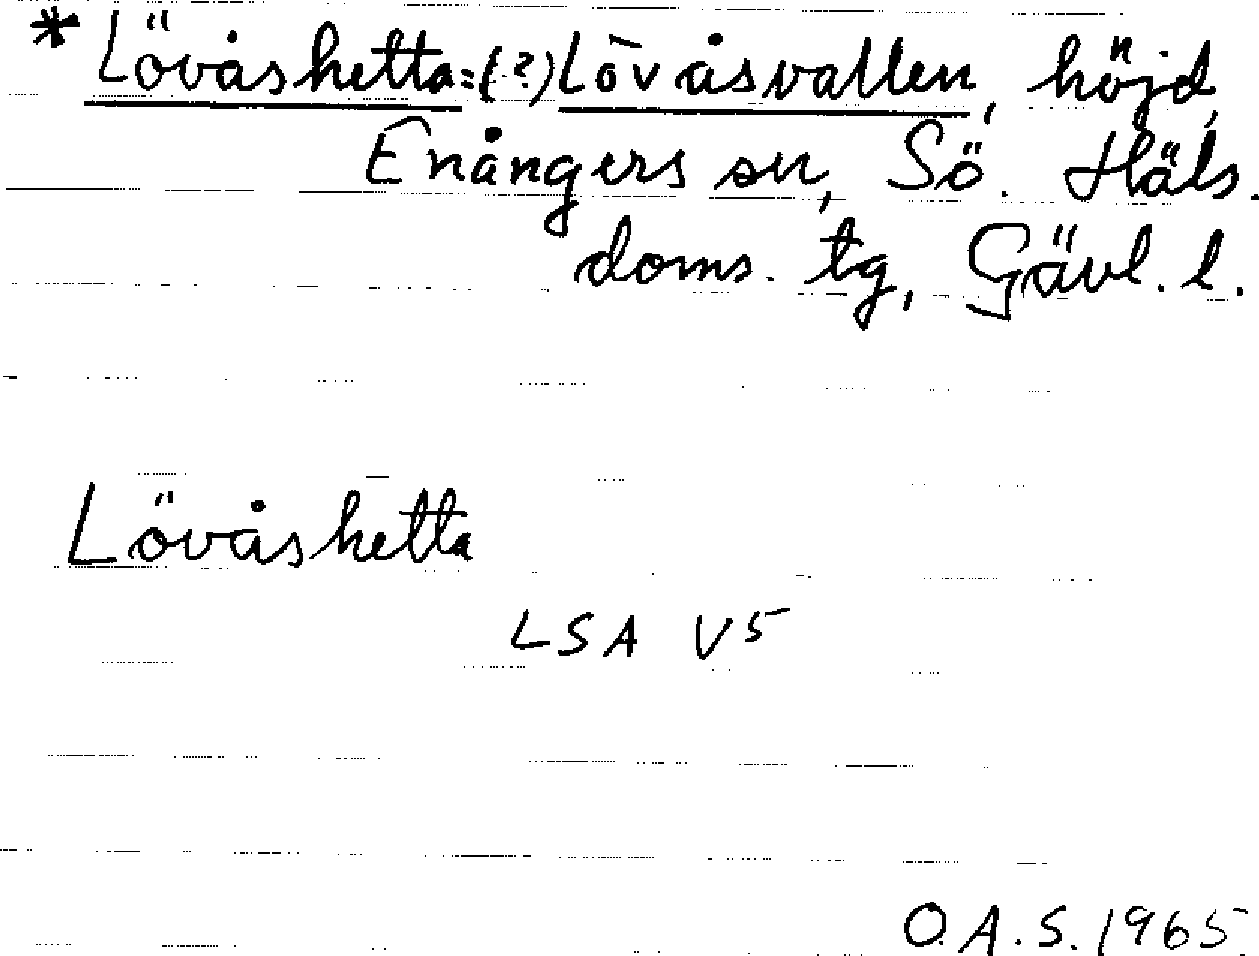 * Lövåshetta = (?) Lövåsvallen, höjd,
Enångers sn, Sö. Häls.
doms. tg, Gävl. l.
Lövåshetta
LSA V5
O.A.S. 1965